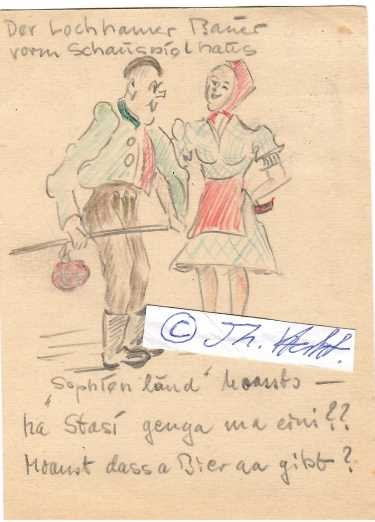 Der Lochhamer Bauer
vorm Schauspielhaus
© Th.
"Sophienländ" hoants —
ha Stasi genga ma eini??
Moanst dass a Bier aa gibt?